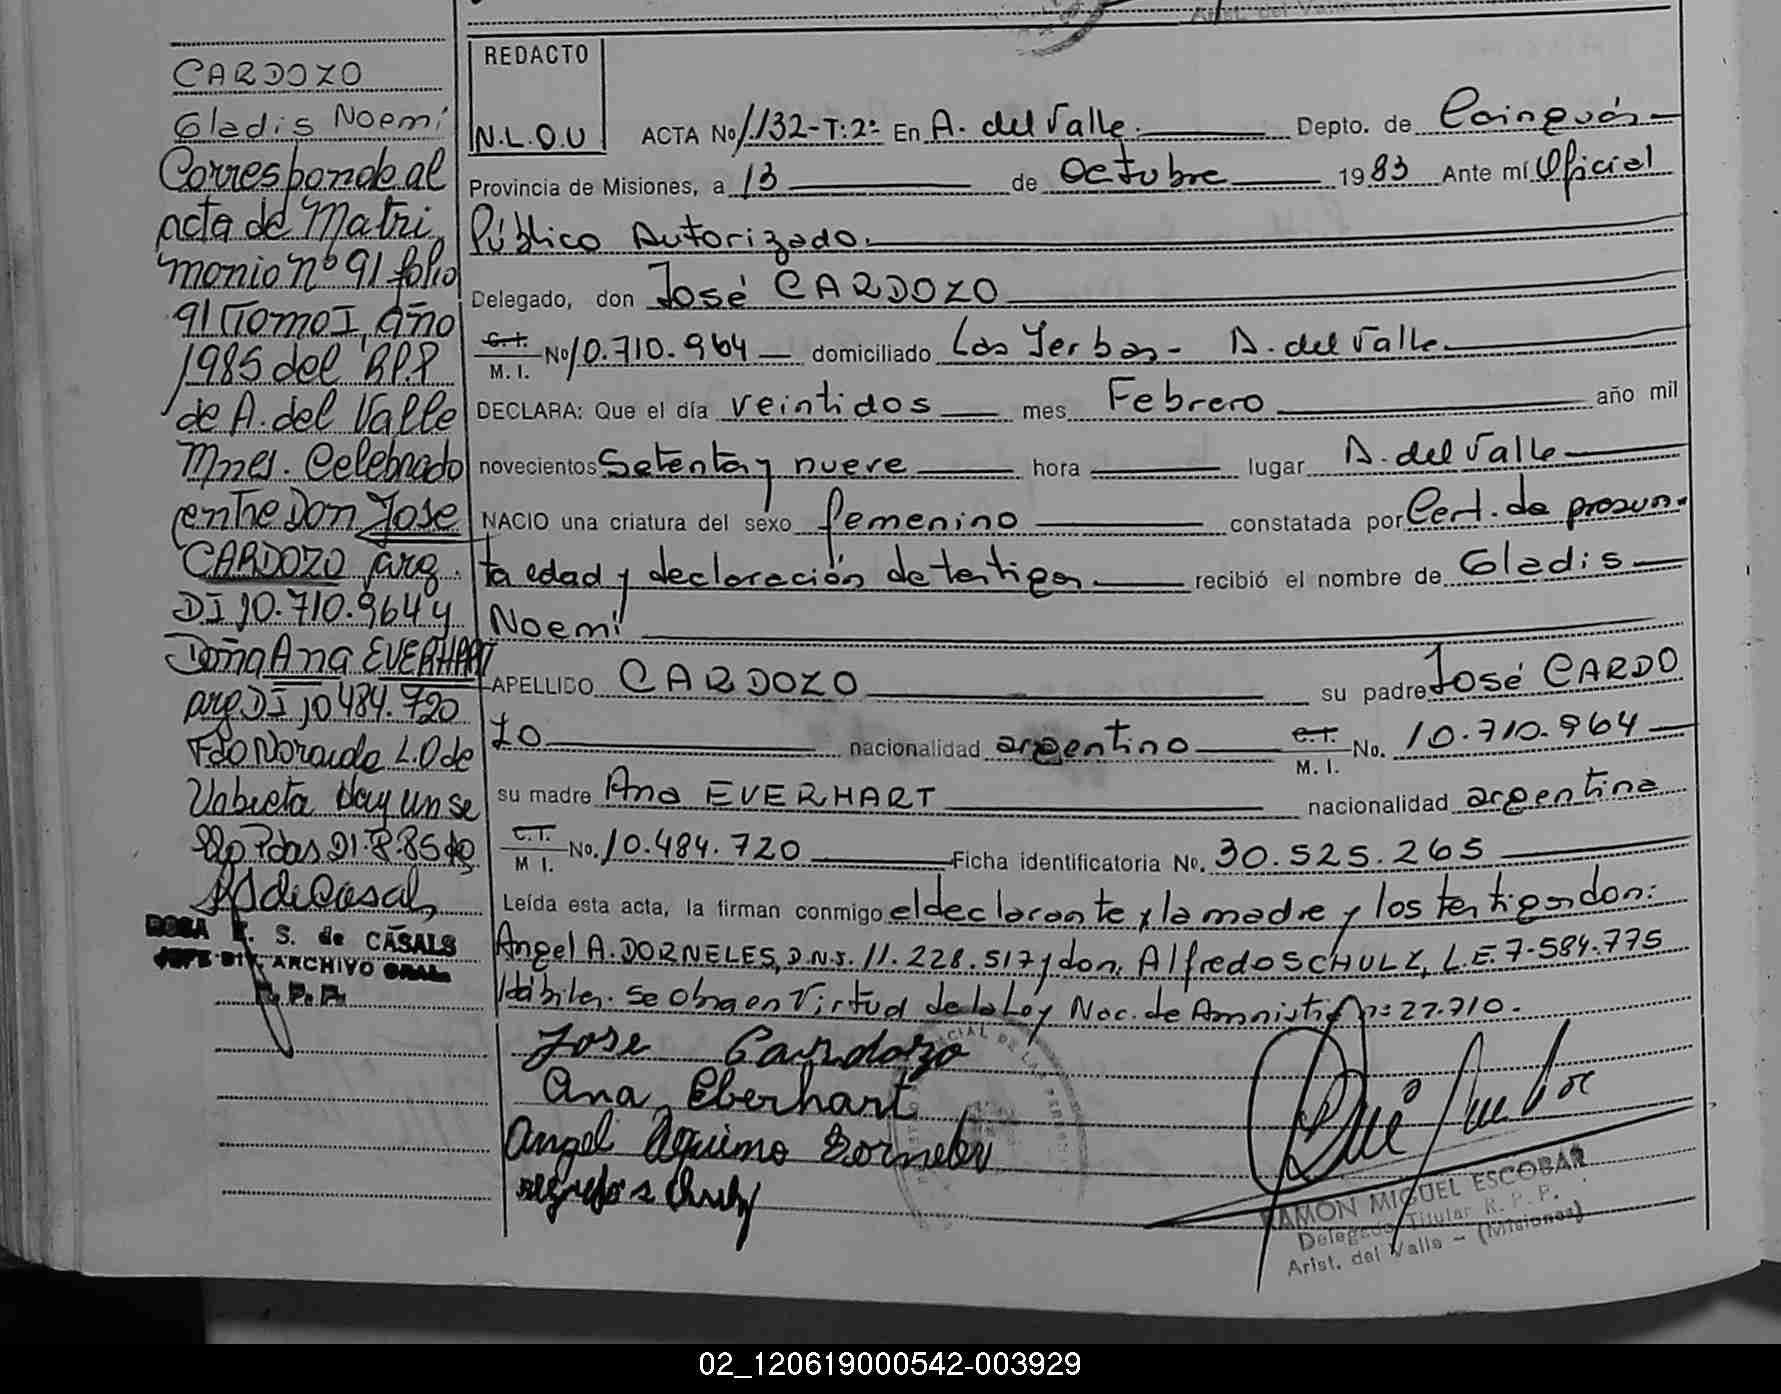 CARDOZO
Gladis Noemí
Corresponde al
acta de Matri
monio nº 91 folio
91 Tomo I, año
1985 del R.P.P
de A. del Valle
Mnes. Celebrado
entre Don Jose
CARDOZO arg.
DI 10.710.964 y
Doña Ana EVERHART
arg DI 10484.720
Fdo Noraida L.O de
Hay un se
llo Pdas 21.8.85 de
RS de Casals
ROSA F. S. de CASALS
JEFE DIV. ARCHIVO GRAL.
R. P. P.
REDACTO
N.L.O.U
ACTA No 1.132-T:2º En A. del Valle. Depto. de Cainguás
Provincia de Misiones, a 13 de Octubre 1983 Ante mí Oficial
Público Autorizado.
Delegado, don José CARDOZO
C.I. M. I. No 10.710.964 domiciliado Las Yerbas - A. del Valle
DECLARA: Que el día veintidos mes Febrero año mil
novecientos Setenta y nueve hora lugar A. del Valle
NACIO una criatura del sexo femenino constatada por Cert. de presun-
ta edad y declaración de testigos recibió el nombre de Gladis
Noemí
APELLIDO CARDOZO su padre José CARDO
ZO nacionalidad argentino C.I. M. I. No. 10.710.964
su madre Ana EVERHART nacionalidad argentina
C.I. M I. No. 10.484.720 Ficha identificatoria No. 30.525.265
Leída esta acta, la firman conmigo el declarante y la madre y los testigos don:
Angel A. DORNELES, D.N.I. 11.228.517 y don. Alfredo SCHULZ, L.E. 7.584.775
Hábiles. Se obra en Virtud de la Ley Nac. de Amnistía nº 22.710.
Jose Cardozo
Ana Eberhart
Angel Aquino Dorneles
RAMON MIGUEL ESCOBAR
Delegado Titular R. P. P.
Arist. del Valle - (Misiones)
02_120619000542-003929